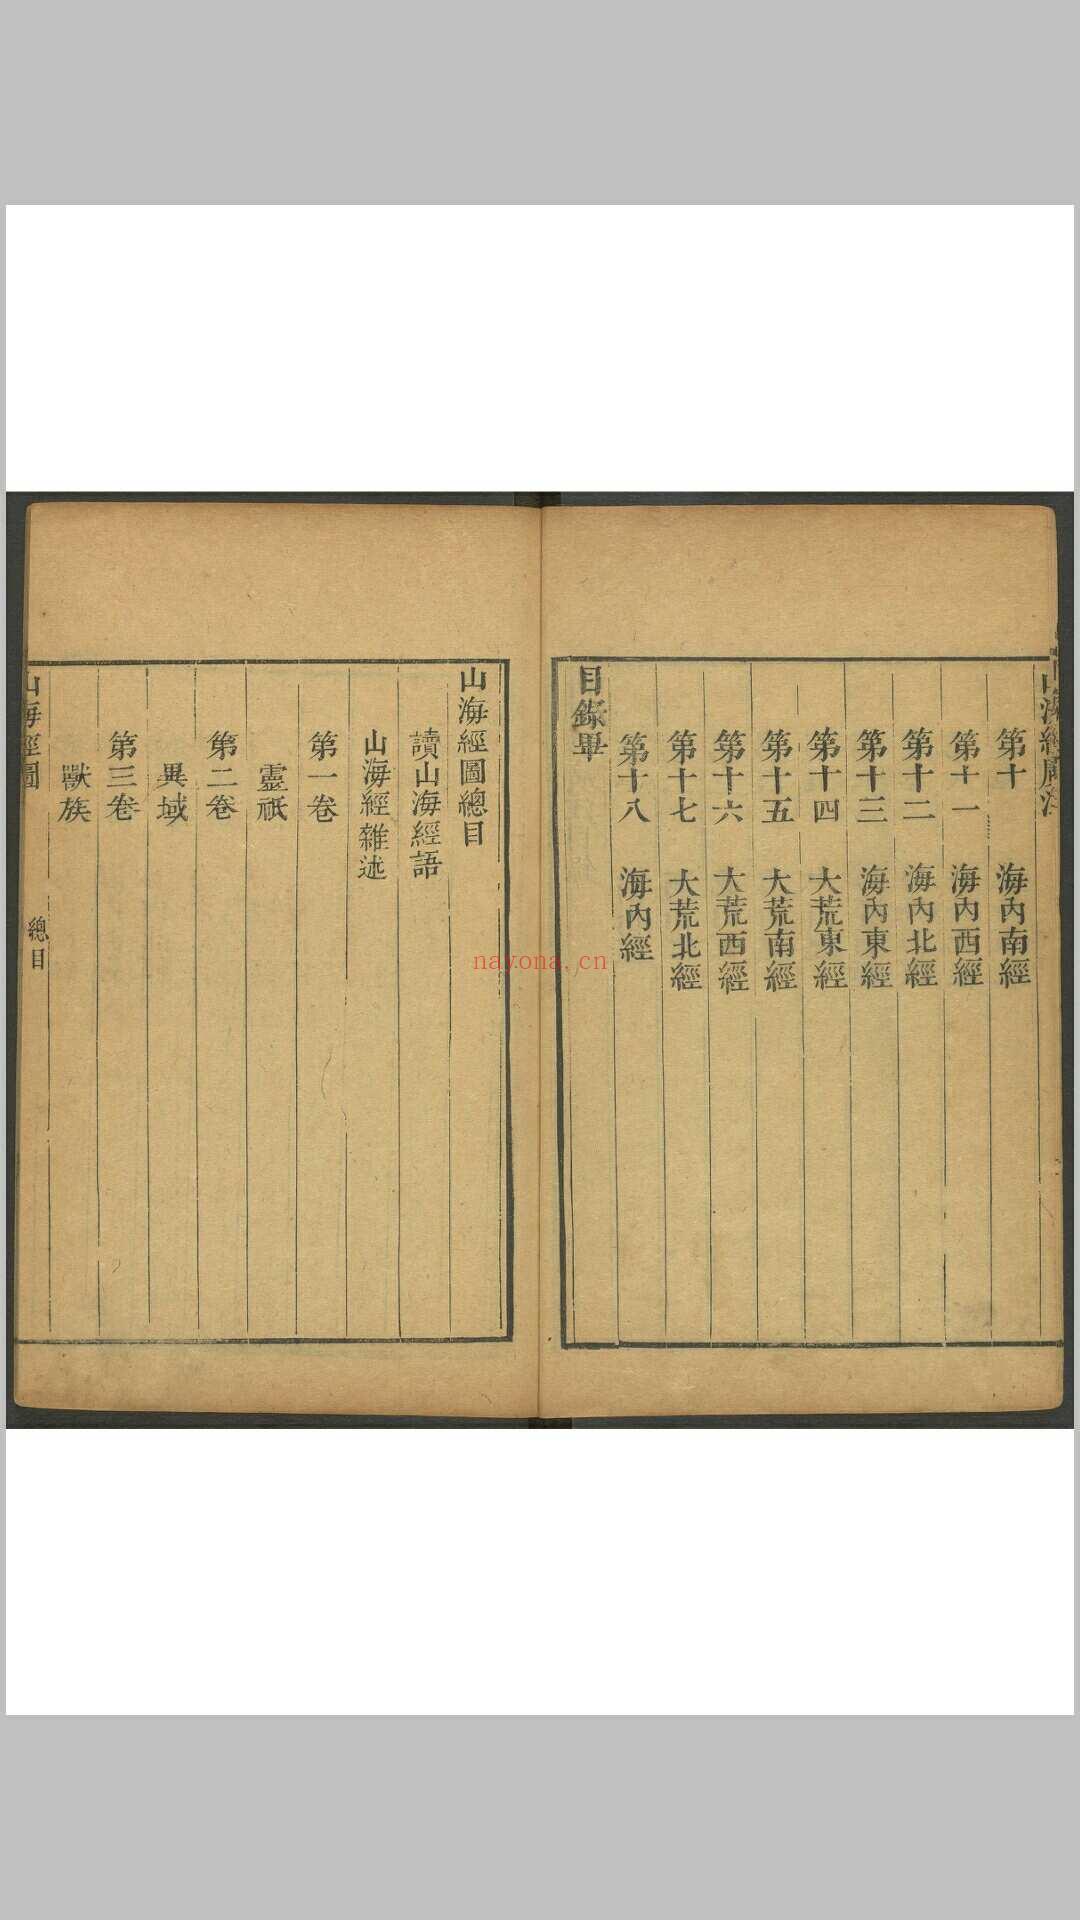 山海經廣注
第十 海內南經
第十一 海內西經
第十二 海內北經
第十三 海內東經
第十四 大荒東經
第十五 大荒南經
第十六 大荒西經
第十七 大荒北經
第十八 海內經
目錄畢
山海經圖總目
讀山海經語
山海經雜述
第一卷
靈祇
第二卷
異域
第三卷
獸族
山海經圖 總目
nayona.cn